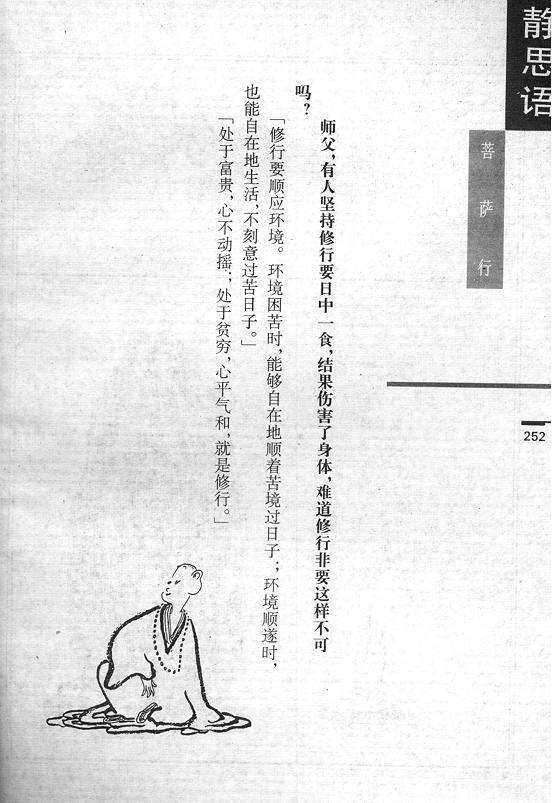 静思语
菩萨行
252
师父，有人坚持修行要日中一食，结果伤害了身体，难道修行非要这样不可
吗？
「修行要顺应环境。环境困苦时，能够自在地顺着苦境过日子；环境顺遂时，
也能自在地生活，不刻意过苦日子。」
「处于富贵，心不动摇；处于贫穷，心平气和，就是修行。」